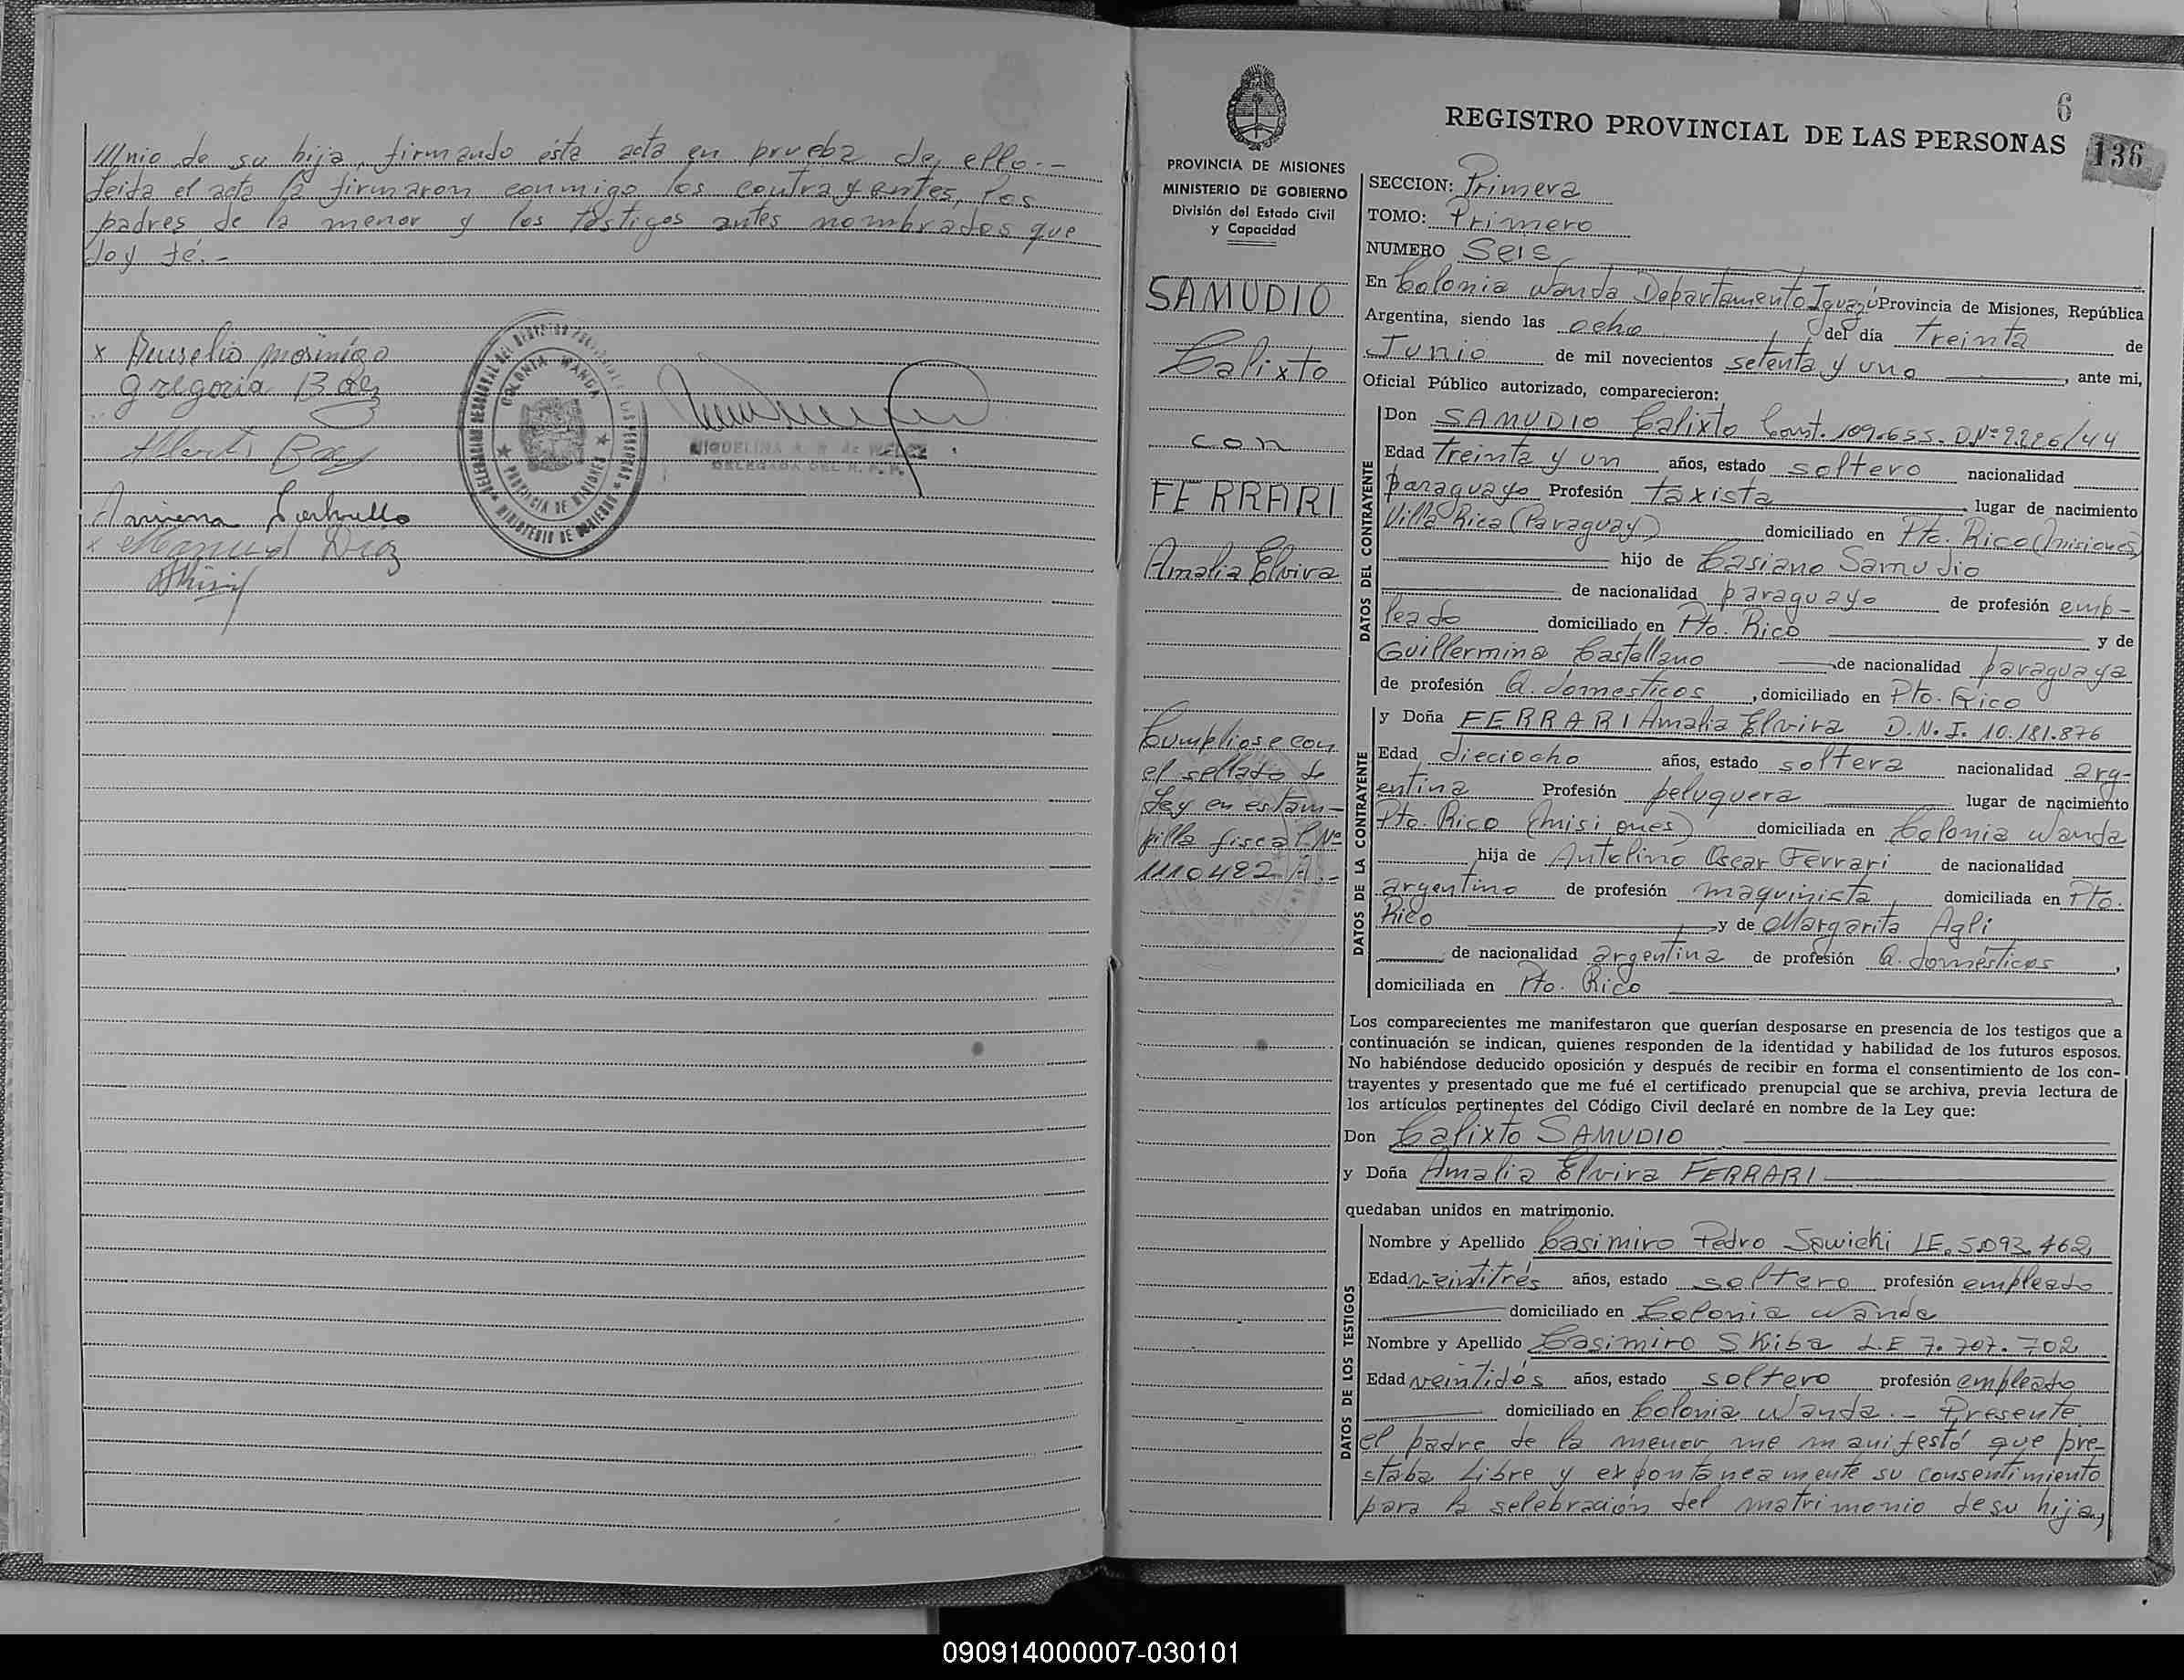 monio de su hija, firmando ésta acta en prueba de, ello.-
Leída el acta la firmaron conmigo los contrayentes, los
padres de la menor y los testigos antes nombrados que
doy fé.-
x
gregoria Baez
COLONIA WANDA
PROVINCIA DE MISIONES
MINISTERIO DE GOBIERNO
DELEGADA DEL R. P. P.
6
REGISTRO PROVINCIAL DE LAS PERSONAS
136
PROVINCIA DE MISIONES
MINISTERIO DE GOBIERNO
División del Estado Civil
y Capacidad
SAMUDIO
Calixto
con
FERRARI
Amalia Elvira
Cumpliose con
el sellado de
Ley en estam-
pilla fiscal Nº
1110482 A.-
SECCION: Primera
TOMO: Primero
NUMERO Seis
En Colonia Wanda Departamento Iguazú Provincia de Misiones, República
Argentina, siendo las ocho del día treinta de
Junio de mil novecientos setenta y uno, ante mi,
Oficial Público autorizado, comparecieron:
DATOS DEL CONTRAYENTE
Don SAMUDIO Calixto Const. 109.655. D.Nº 2226/44
Edad Treinta y un años, estado soltero nacionalidad
paraguayo Profesión taxista lugar de nacimiento
Villa Rica (Paraguay) domiciliado en Pto. Rico (misiones)
hijo de Casiano Samudio
de nacionalidad paraguayo de profesión emp-
leado domiciliado en Pto. Rico y de
Guillermina Castellano de nacionalidad paraguaya
de profesión Q. domesticos, domiciliado en Pto. Rico
DATOS DE LA CONTRAYENTE
y Doña FERRARI Amalia Elvira D.N.I. 10.181.876
Edad dieciocho años, estado soltera nacionalidad arg-
entina Profesión peluquera lugar de nacimiento
Pto. Rico (misiones) domiciliada en Colonia Wanda
hija de Antolino Oscar Ferrari de nacionalidad
argentino de profesión maquinista, domiciliada en Pto.
Rico y de Margarita Agli
de nacionalidad argentina de profesión Q. domésticos,
domiciliada en Pto. Rico
Los comparecientes me manifestaron que querían desposarse en presencia de los testigos que a
continuación se indican, quienes responden de la identidad y habilidad de los futuros esposos.
No habiéndose deducido oposición y después de recibir en forma el consentimiento de los con-
trayentes y presentado que me fué el certificado prenupcial que se archiva, previa lectura de
los artículos pertinentes del Código Civil declaré en nombre de la Ley que:
Don Calixto SAMUDIO
y Doña Amalia Elvira FERRARI
quedaban unidos en matrimonio.
DATOS DE LOS TESTIGOS
Nombre y Apellido Casimiro Pedro Sawicki LE. 5.093.462
Edad veintitrés años, estado soltero profesión empleado
domiciliado en Colonia Wanda
Nombre y Apellido Casimiro Skiba L.E 7.707.702
Edad veintidós años, estado soltero profesión empleado
domiciliado en Colonia Wanda.- Presente
el padre de la menor me manifestó que pre-
staba Libre y expontaneamente su consentimiento
para la selebración del matrimonio de su hija,
090914000007-030101